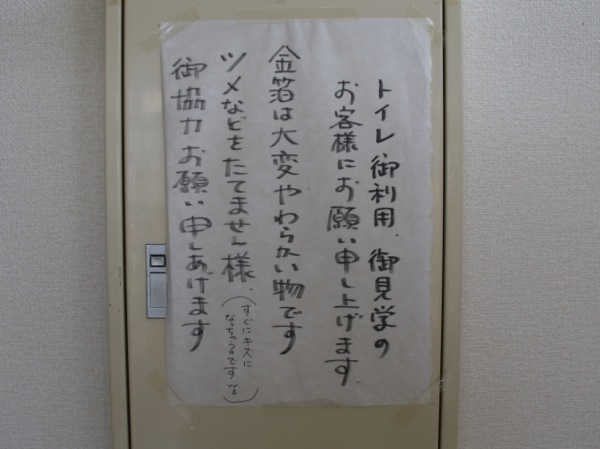 トイレ御利用、御見学の
お客様にお願い申し上げます。
金箔は大変やわらかい物です
ツメなどをたてません様、
(すぐにキズに
なっちゃうのです)
御協力お願い申しあげます